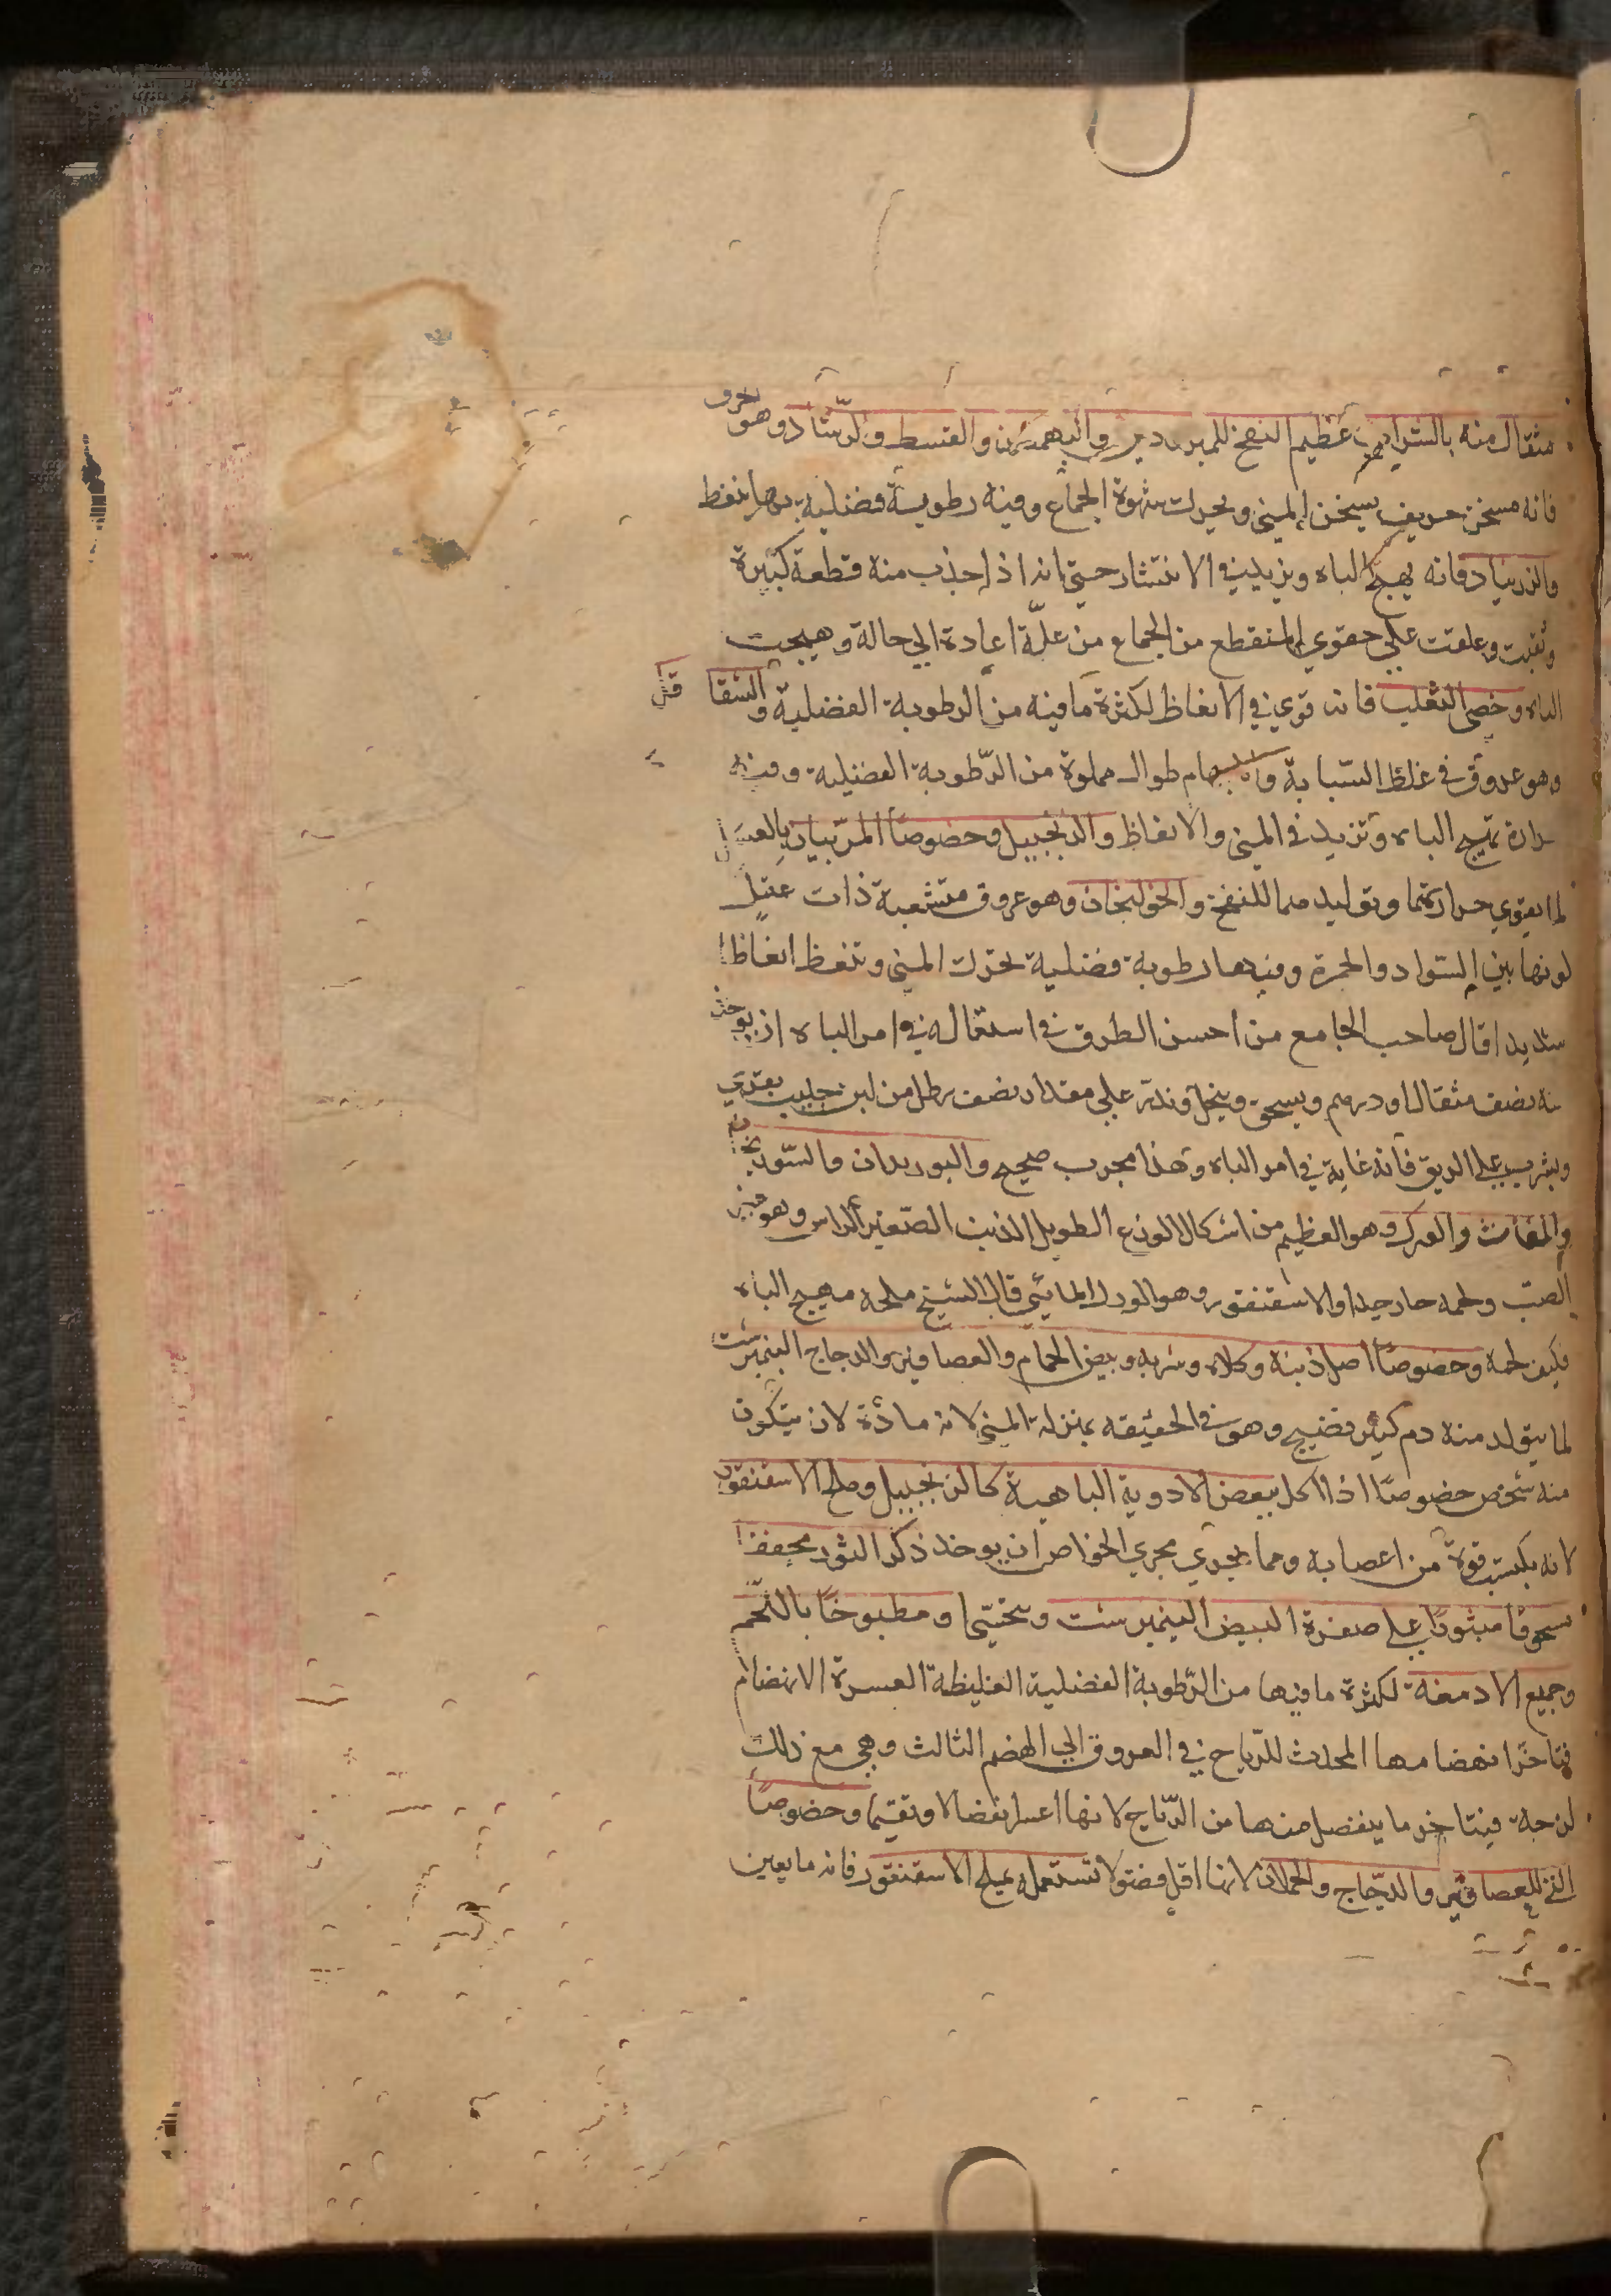 مثقال منه بالشراب عظيم النفع للمبرودين والبهمنان والقسط والرشاد وهو الحرف
فانه مسخن حريف يسخن المني ويحرك شهوة الجماع وفيه رطوبة فضلية بها ينفظ
والزرنباد فانه يهيج الباه ويزيد في الانتشار حتي انه اذا جذب منه قطعة كبيرة
وثقبت وعلقت علي حقوي المنقطع من الجماع من علة اعادة الي حالة وهيجت
الباه وخصي الثعلب فانه قوي في الانعاظ لكثرة ما فيه من الرطوبة الفضلية والشقا قل
وهو عروق في غلظ السبابة والابهام طوال مملوة من الرطوبة الفضلية وفيه
حرارة تهيج الباه وتزيد في المني والانعاظ والزنجبيل وخصوصا المربيان بالعسل
لما يقوي حرارتهما وتوليدهما للنفخ والخولنجان وهو عروق متشعبة ذات عقد
لونها بين السواد والحمرة وفيها رطوبة فضلية تحرك المني وتنعظ انعاظا
شديدا قال صاحب الجامع من احسن الطرق في استعماله في امر الباه ان يوخذ
منه نصف مثقال او درهم ويسحق وينخل ويذر علي مقدار نصف رطل من لبن حليب بقري
ويشرب علي الريق فانه غاية في امر الباه وهذا مجرب صحيح والبوزيدان والسورنجان
والمغاث والورل وهو العظيم من اشكال الوزغ الطويل الذنب الصغير الراس وهو غير
الضب ولحمه حار جدا والاسقنقور وهو الورل المائي قال الشيخ ملحه مهيج الباه
فكيف لحمه وخصوصا اصل ذنبه وكلاه وسرته وبيض الحمام والعصافير والدجاج النيمبرشت
لما يتولد منه دم كثير نضيج وهو في الحقيقه بمنزلة المني لانه مادة لان يتكون
منه شخص خصوصا اذا اكل ببعض الادوية الباهية كالزنجبيل وملح الاسقنقور
لانه يكسبه قوة من اعصابه ومما يجري مجري الخواص ان يوخذ ذكر الثور مجففا
مسحوقا مبثوثا علي صفرة البيض النيمبرشت وتحتيتا ومطبوخا باللحم
وجميع الادمغة لكثرة ما فيها من الرطوبة الفضلية الغليظة العسرة الانهضام
فيتاخر انهضامها المحدث للرياح في العروق الي الهضم الثالث وهي مع ذلك
لزجة فيتاخر ما ينفصل منها من الرياح لانها اعسر انفصالا وتفتيتا وخصوصا
التي للعصافير والدجاج والحملان لانها اقل فضولا تستعمل بملح الاسقنقور فانه ما يعين